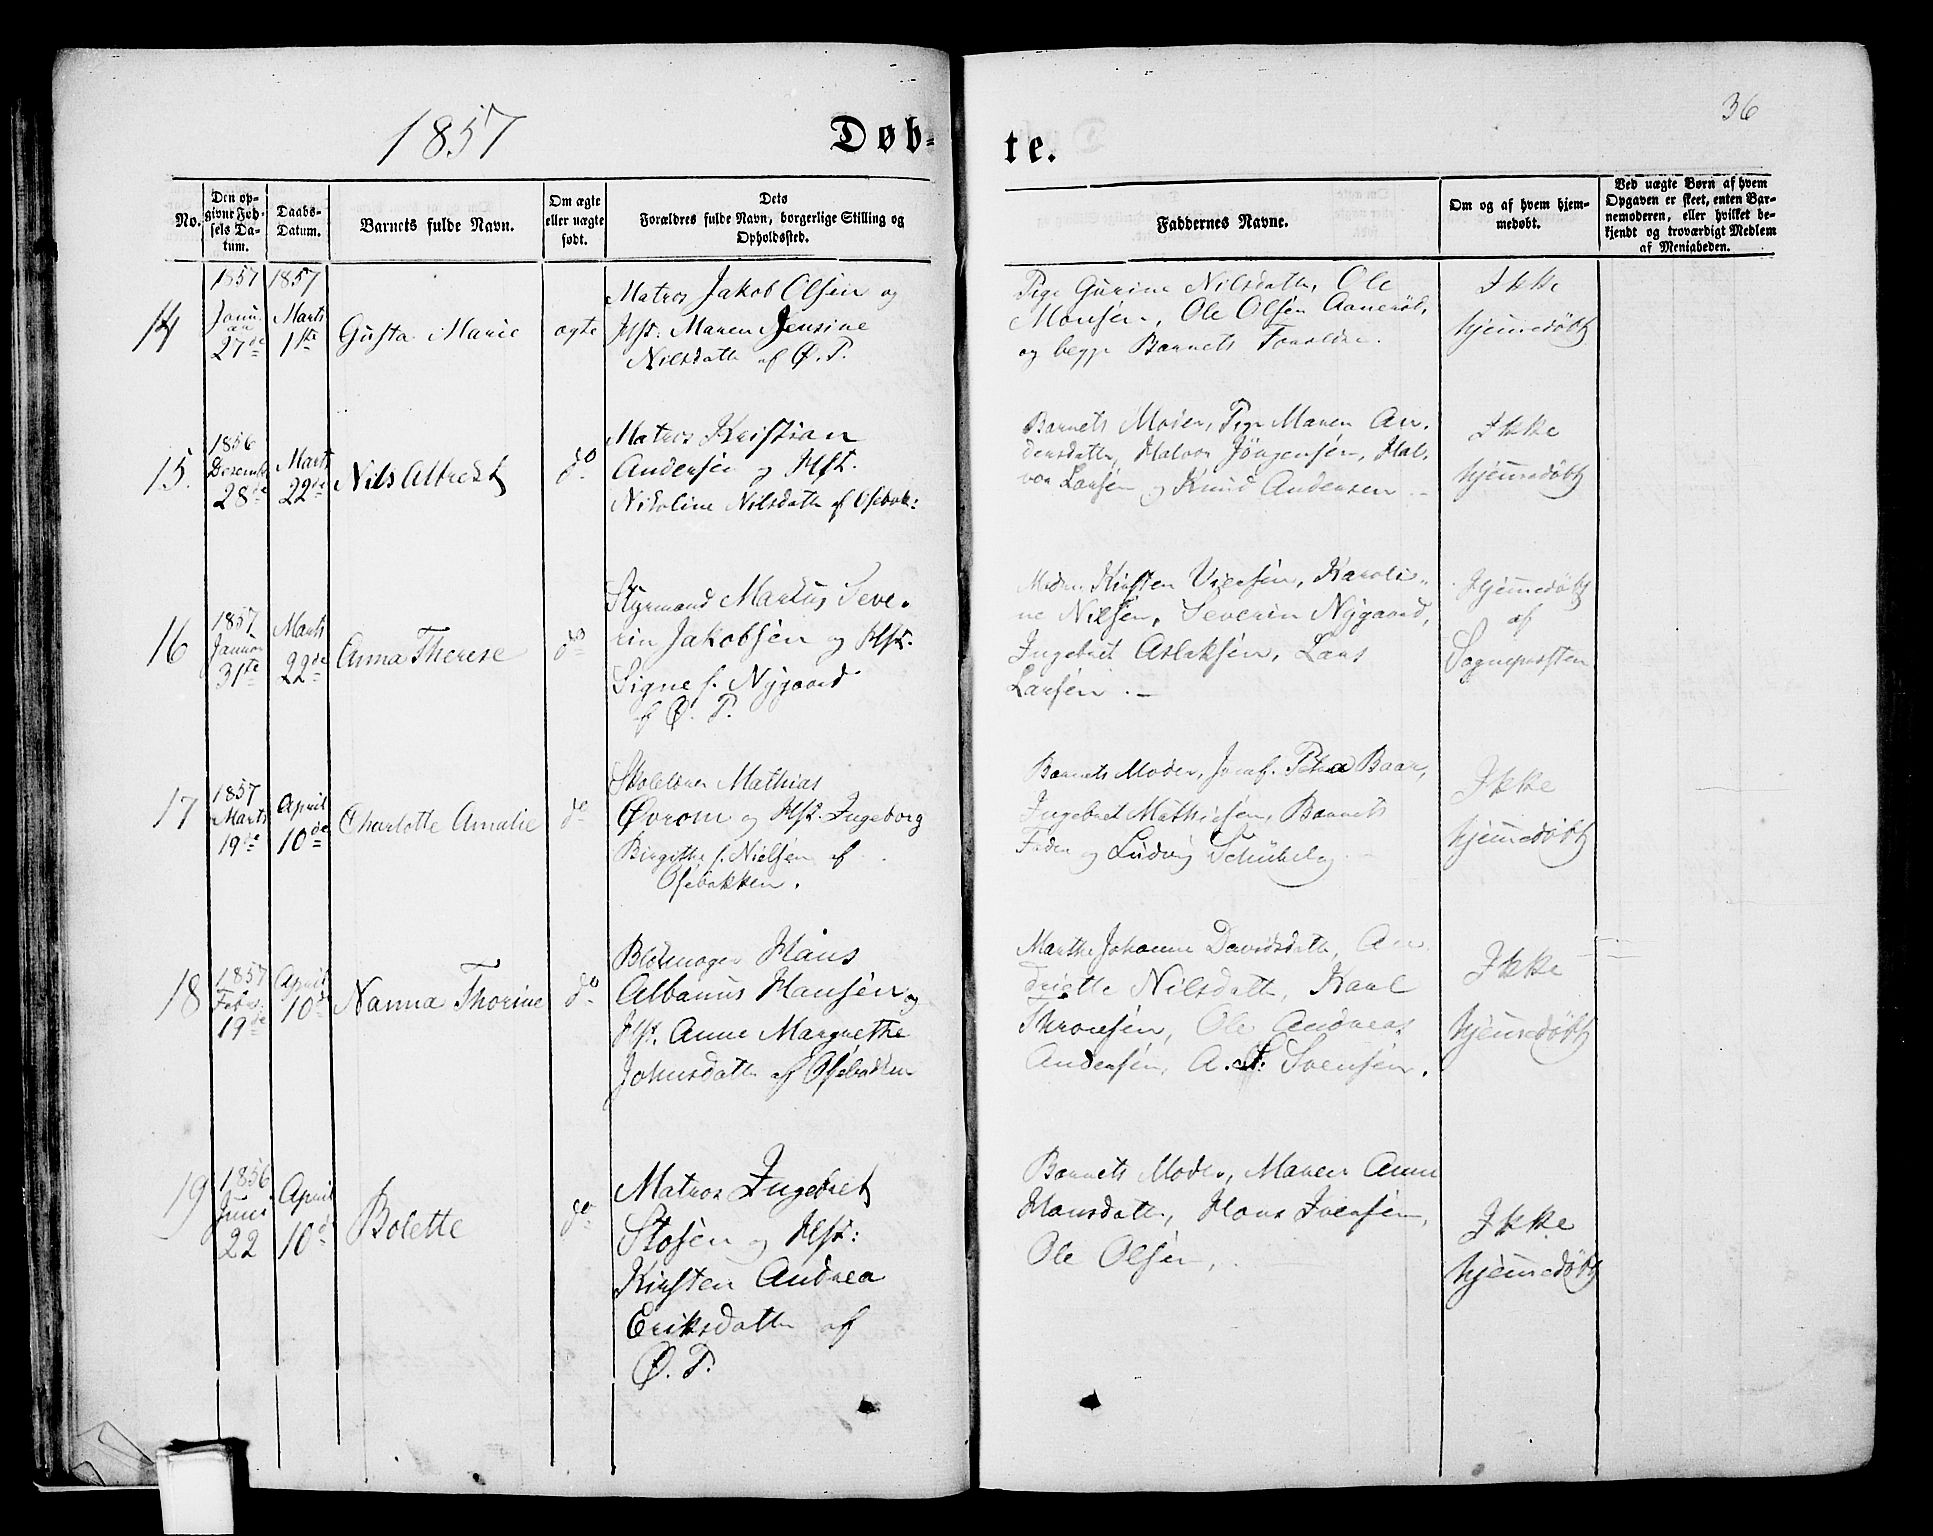 36
1857
Døb-
te.
No.
Den op-
givne Fød-
sels Da-
tum.
Daabs-
Datum.
Barnets fulde Navn.
Om ægte
eller uægte
født.
Dets
Forældres fulde Navn, borgerlige Stilling og
Opholdssted.
Faddernes Navne.
Om og af hvem hjem-
medøbt.
Ved uægte Børn af hvem
Opgaven er skeet, enten Bar-
nemoderen, eller hvilket be-
kjendt og troværdigt Medlem
af Menigheden.
14
1857
Janu-
ar
27de
1857
Marts
1ste
Gusta Marie
ægte
Matros Jakob Olsen og
Hst. Maren Jensine
Nilsdatter af Ø. P.
Pige Gurine Nilsdatter, Ole
Monsen, Ole Olsen Aanerød,
og begge Barnets Forældre.
Ikke
hjemmedøbt
15.
1856
Decemb
28de
Marts
22de
Nils Albrekt
do
Matros Kristian
Andersen og Hst.
Nikoline Nilsdatter af Osebak:
Barnets Moder, Pige Maren An-
dersdatter, Halvor Jörgensen, Hal-
vor Larsen og Knud Andersen.
Ikke
hjemmedøbt
16
1857
Januar
31te
Marts
22de
Anna Therese
do
Styrmand Markus Seve-
rin Jakobsen og Hst.
Signe f. Nygaard
af Ø. P.
Moder, Kirsten Versen, Karoli-
ne Nilsen, Severin Nygaard,
Ingebret Aslaksen, Lars
Larsen.
Hjemmedøbt
af
Sognepræsten
17
1857
Marts
19de
April
10de
Charlotte Amalie
do
Skolelærer Mathias
Øvrom og Hst. Ingeborg
Birgithe f. Nielsen af
Osebakken.
Barnets Moder, Jomf. Petra Baar,
Ingebret Mathisen, Barnets
Fader og Ludvig Schübeleg
Ikke
hjemmedøbt
18
1857
Febr.
19de
April
10de
Nanna Thorine
do
Blokmager Hans
Albanus Hansen og
Hst. Anne Margrethe
Johnsdatter af Osebakken
Marthe Johanne Davidsdatter, An-
driette Nilsdatter, Karl
Thronsen, Ole Andreas
Andersen, A. S. Svensen.
Ikke
hjemmedøbt
19
1856
Juni
22
April
10de
Bolette
do
Matros Ingebret
Stosen og Hst:
Kirsten Andrea
Eriksdatter af
Ø. P.
Barnets Moder, Maren Anne
Hansdatter, Hans Iversen,
Ole Olsen,
Ikke
hjemmedøbt